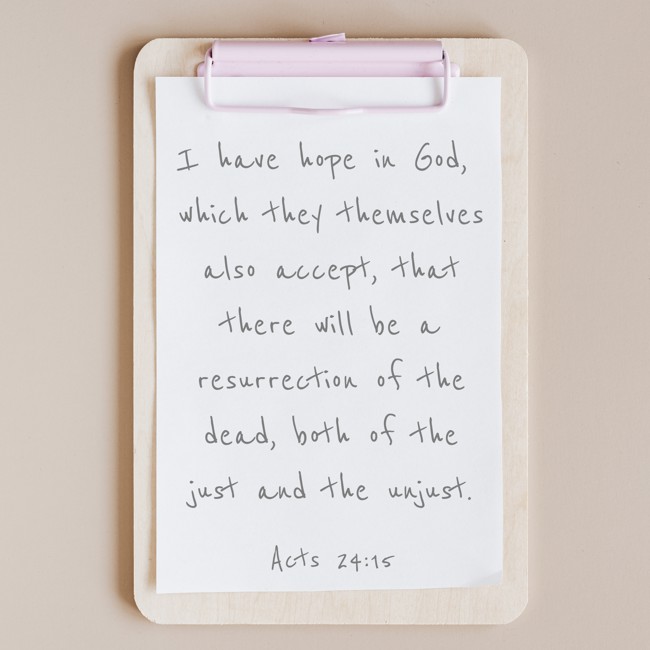 I have hope in God,
which they themselves
also accept, that
there will be a
resurrection of the
dead, both of the
just and the unjust.
Acts 24:15